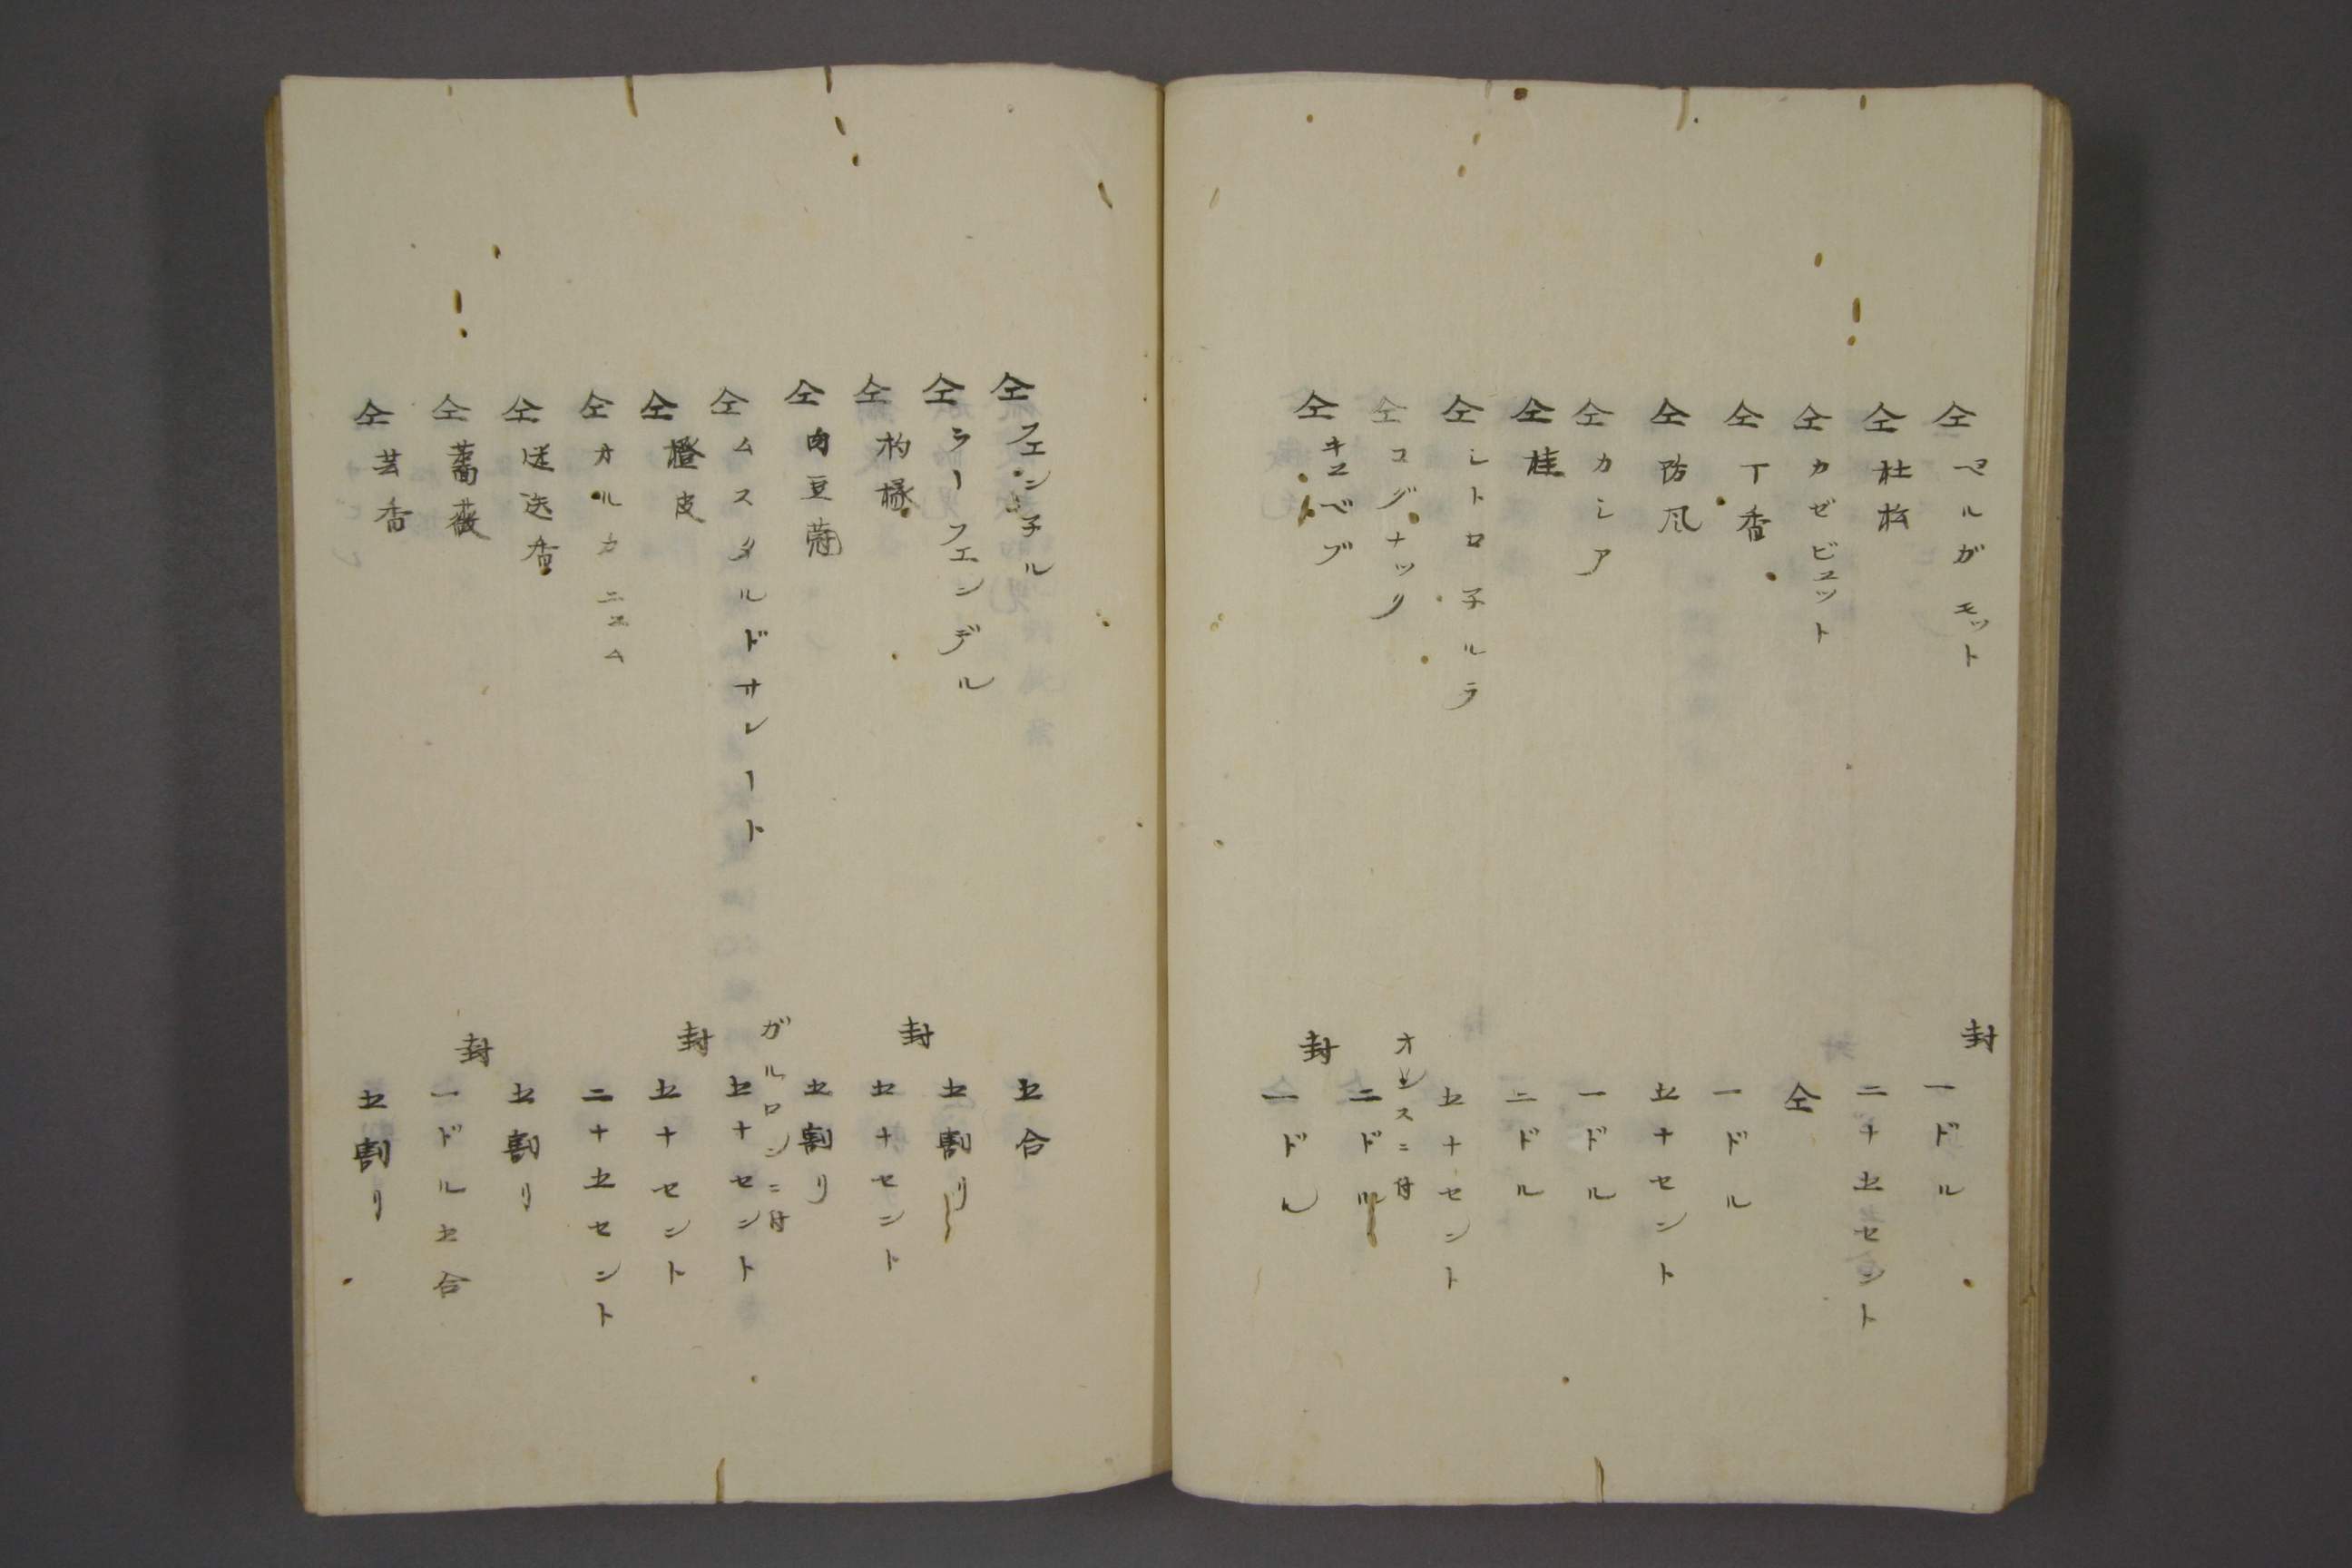 仝ベルガモット 封 一ドル
仝杜松 二十五セント
仝カゼピュット 仝
仝丁香 一ドル
仝防風 五十セント
仝カシア 一ドル
仝桂 二ドル
仝シトロ子ルラ 五十セント
仝コグナック オンスニ付 二ドル
仝キユベブ 封 一ドル
仝フェン子ル 五合
仝ラーフェンデル 五割リ
仝枸櫞 封 五十セント
仝肉豆蔲 五割リ
仝ムスタルドオレート ガルロンニ付 五十セント
仝橙皮 封 五十セント
仝オルカニユム 二十五セント
仝迷迭香 五割リ
仝薔薇 封 一ドル五合
仝芸香 五割リ